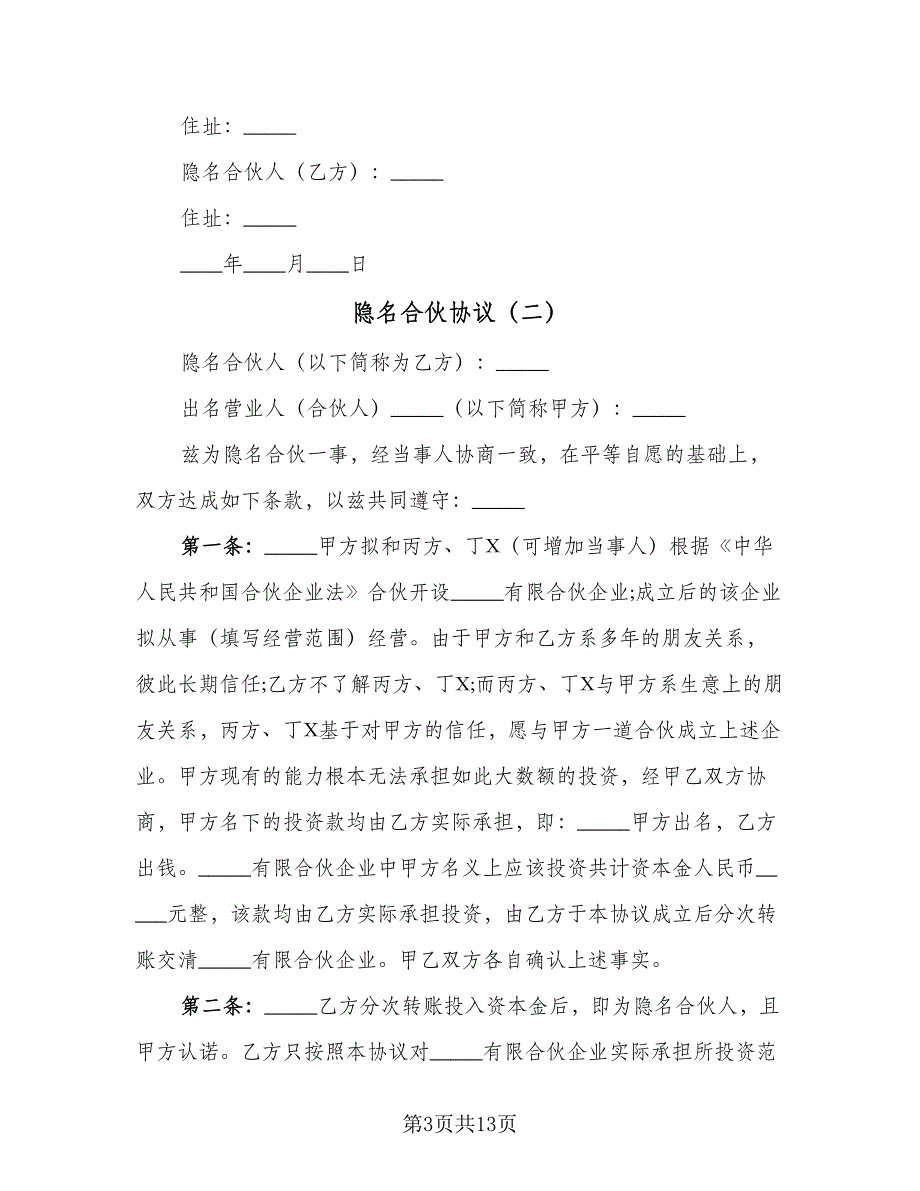 住址：_____
隐名合伙人（乙方）：_____
住址：_____
____年____月____日
隐名合伙协议（二）
隐名合伙人（以下简称为乙方）：_____
出名营业人（合伙人）_____（以下简称甲方）：_____
兹为隐名合伙一事，经当事人协商一致，在平等自愿的基础上，
双方达成如下条款，以兹共同遵守：_____
第一条：_____甲方拟和丙方、丁X（可增加当事人）根据《中华
人民共和国合伙企业法》合伙开设_____有限合伙企业;成立后的该企业
拟从事（填写经营范围）经营。由于甲方和乙方系多年的朋友关系，
彼此长期信任;乙方不了解丙方、丁X;而丙方、丁X与甲方系生意上的朋
友关系，丙方、丁X基于对甲方的信任，愿与甲方一道合伙成立上述企
业。甲方现有的能力根本无法承担如此大数额的投资，经甲乙双方协
商，甲方名下的投资款均由乙方实际承担，即：_____甲方出名，乙方
出钱。_____有限合伙企业中甲方名义上应该投资共计资本金人民币__
___元整，该款均由乙方实际承担投资，由乙方于本协议成立后分次转
账交清_____有限合伙企业。甲乙双方各自确认上述事实。
第二条：_____乙方分次转账投入资本金后，即为隐名合伙人，且
甲方认诺。乙方只按照本协议对_____有限合伙企业实际承担所投资范
第3页共13页